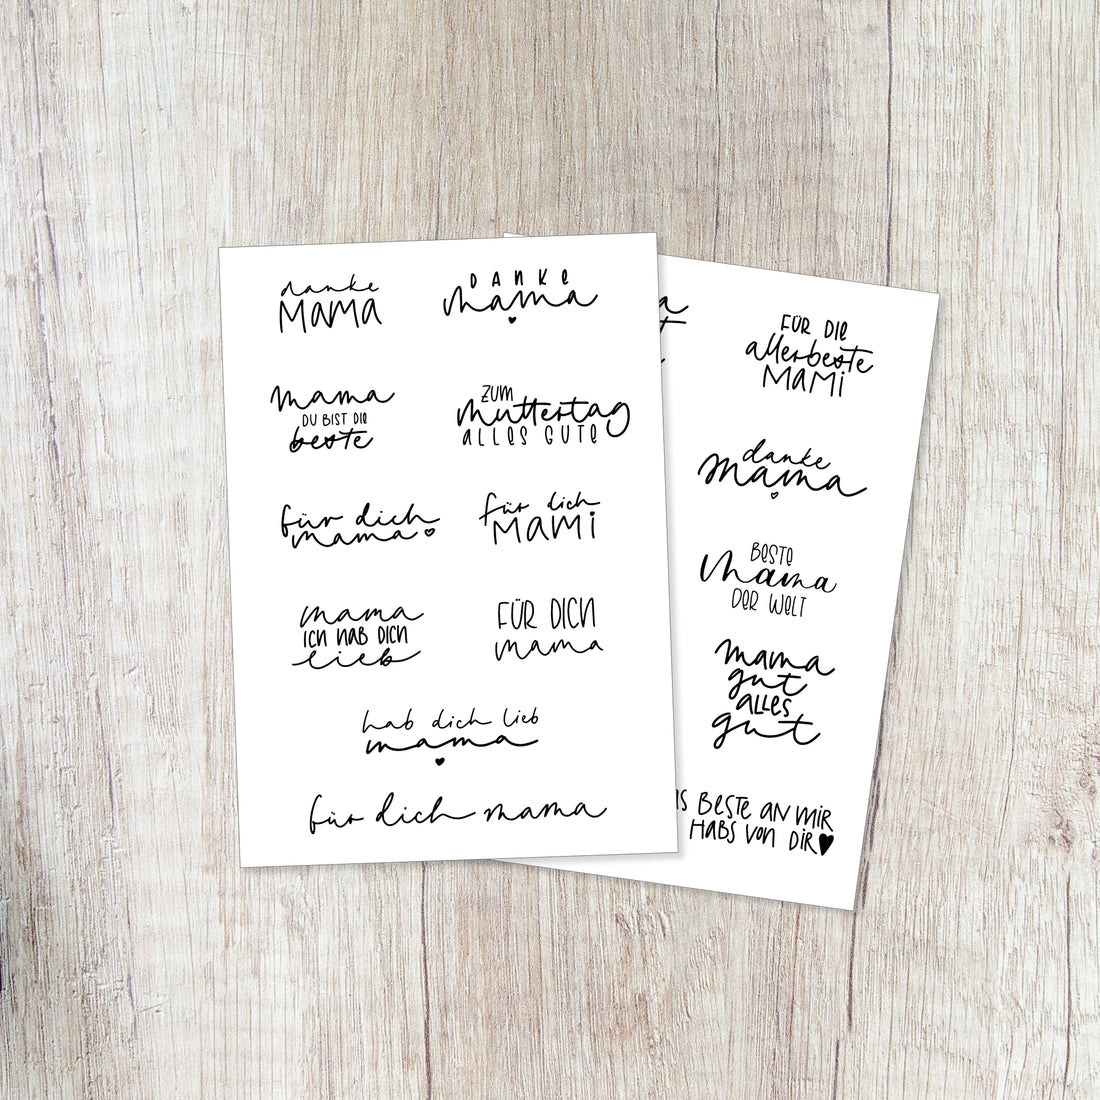 danke
MAMA
DANKE
mama
mama
DU BIST DIE
beste
ZUM
muttertag
ALLES GUTE
für dich
mama
für dich
MAMI
mama
ICH HAB DICH
lieb
FÜR DICH
mama
hab dich lieb
mama
für dich mama
FÜR DIE
allerbeste
MAMI
danke
mama
BESTE
mama
DER WELT
mama
gut
ALLES
gut
BESTE AN MIR
HABS VON DIR